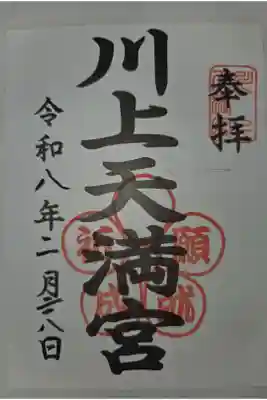 奉拝
川上天満宮
令和八年二月二八日
祈願
成就